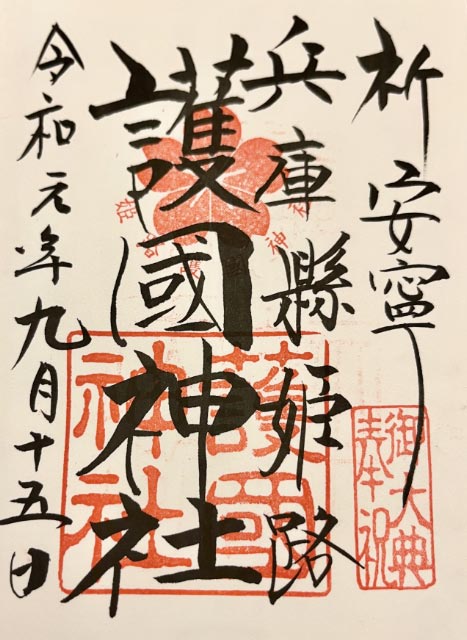 祈 安寧
兵庫縣姫路
護國神社
令和元年九月十五日
御大典
奉祝
護國
神社